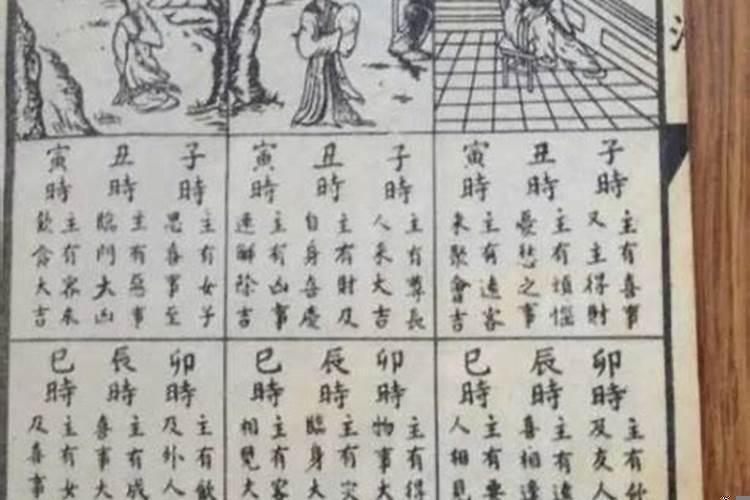 子時
主有喜事
又主得財
丑時
主有煩惱
憂愁之事
寅時
主有遠客
來聚會吉
子時
主有尊長
人來大吉
丑時
主有財及
自身喜慶
寅時
主有凶事
速解除吉
子時
主有女子
思喜事至
丑時
主有惡事
臨門大凶
寅時
主有客來
飲食大吉
卯時
主有飲
及友人
辰時
主有遠
喜相逢
巳時
主有要
人相見
卯時
主有得
物事大
辰時
主有災
臨身大
巳時
主有客
相見大
卯時
主有飲
及外人
辰時
主有成
喜事大
巳時
主有女
及喜事